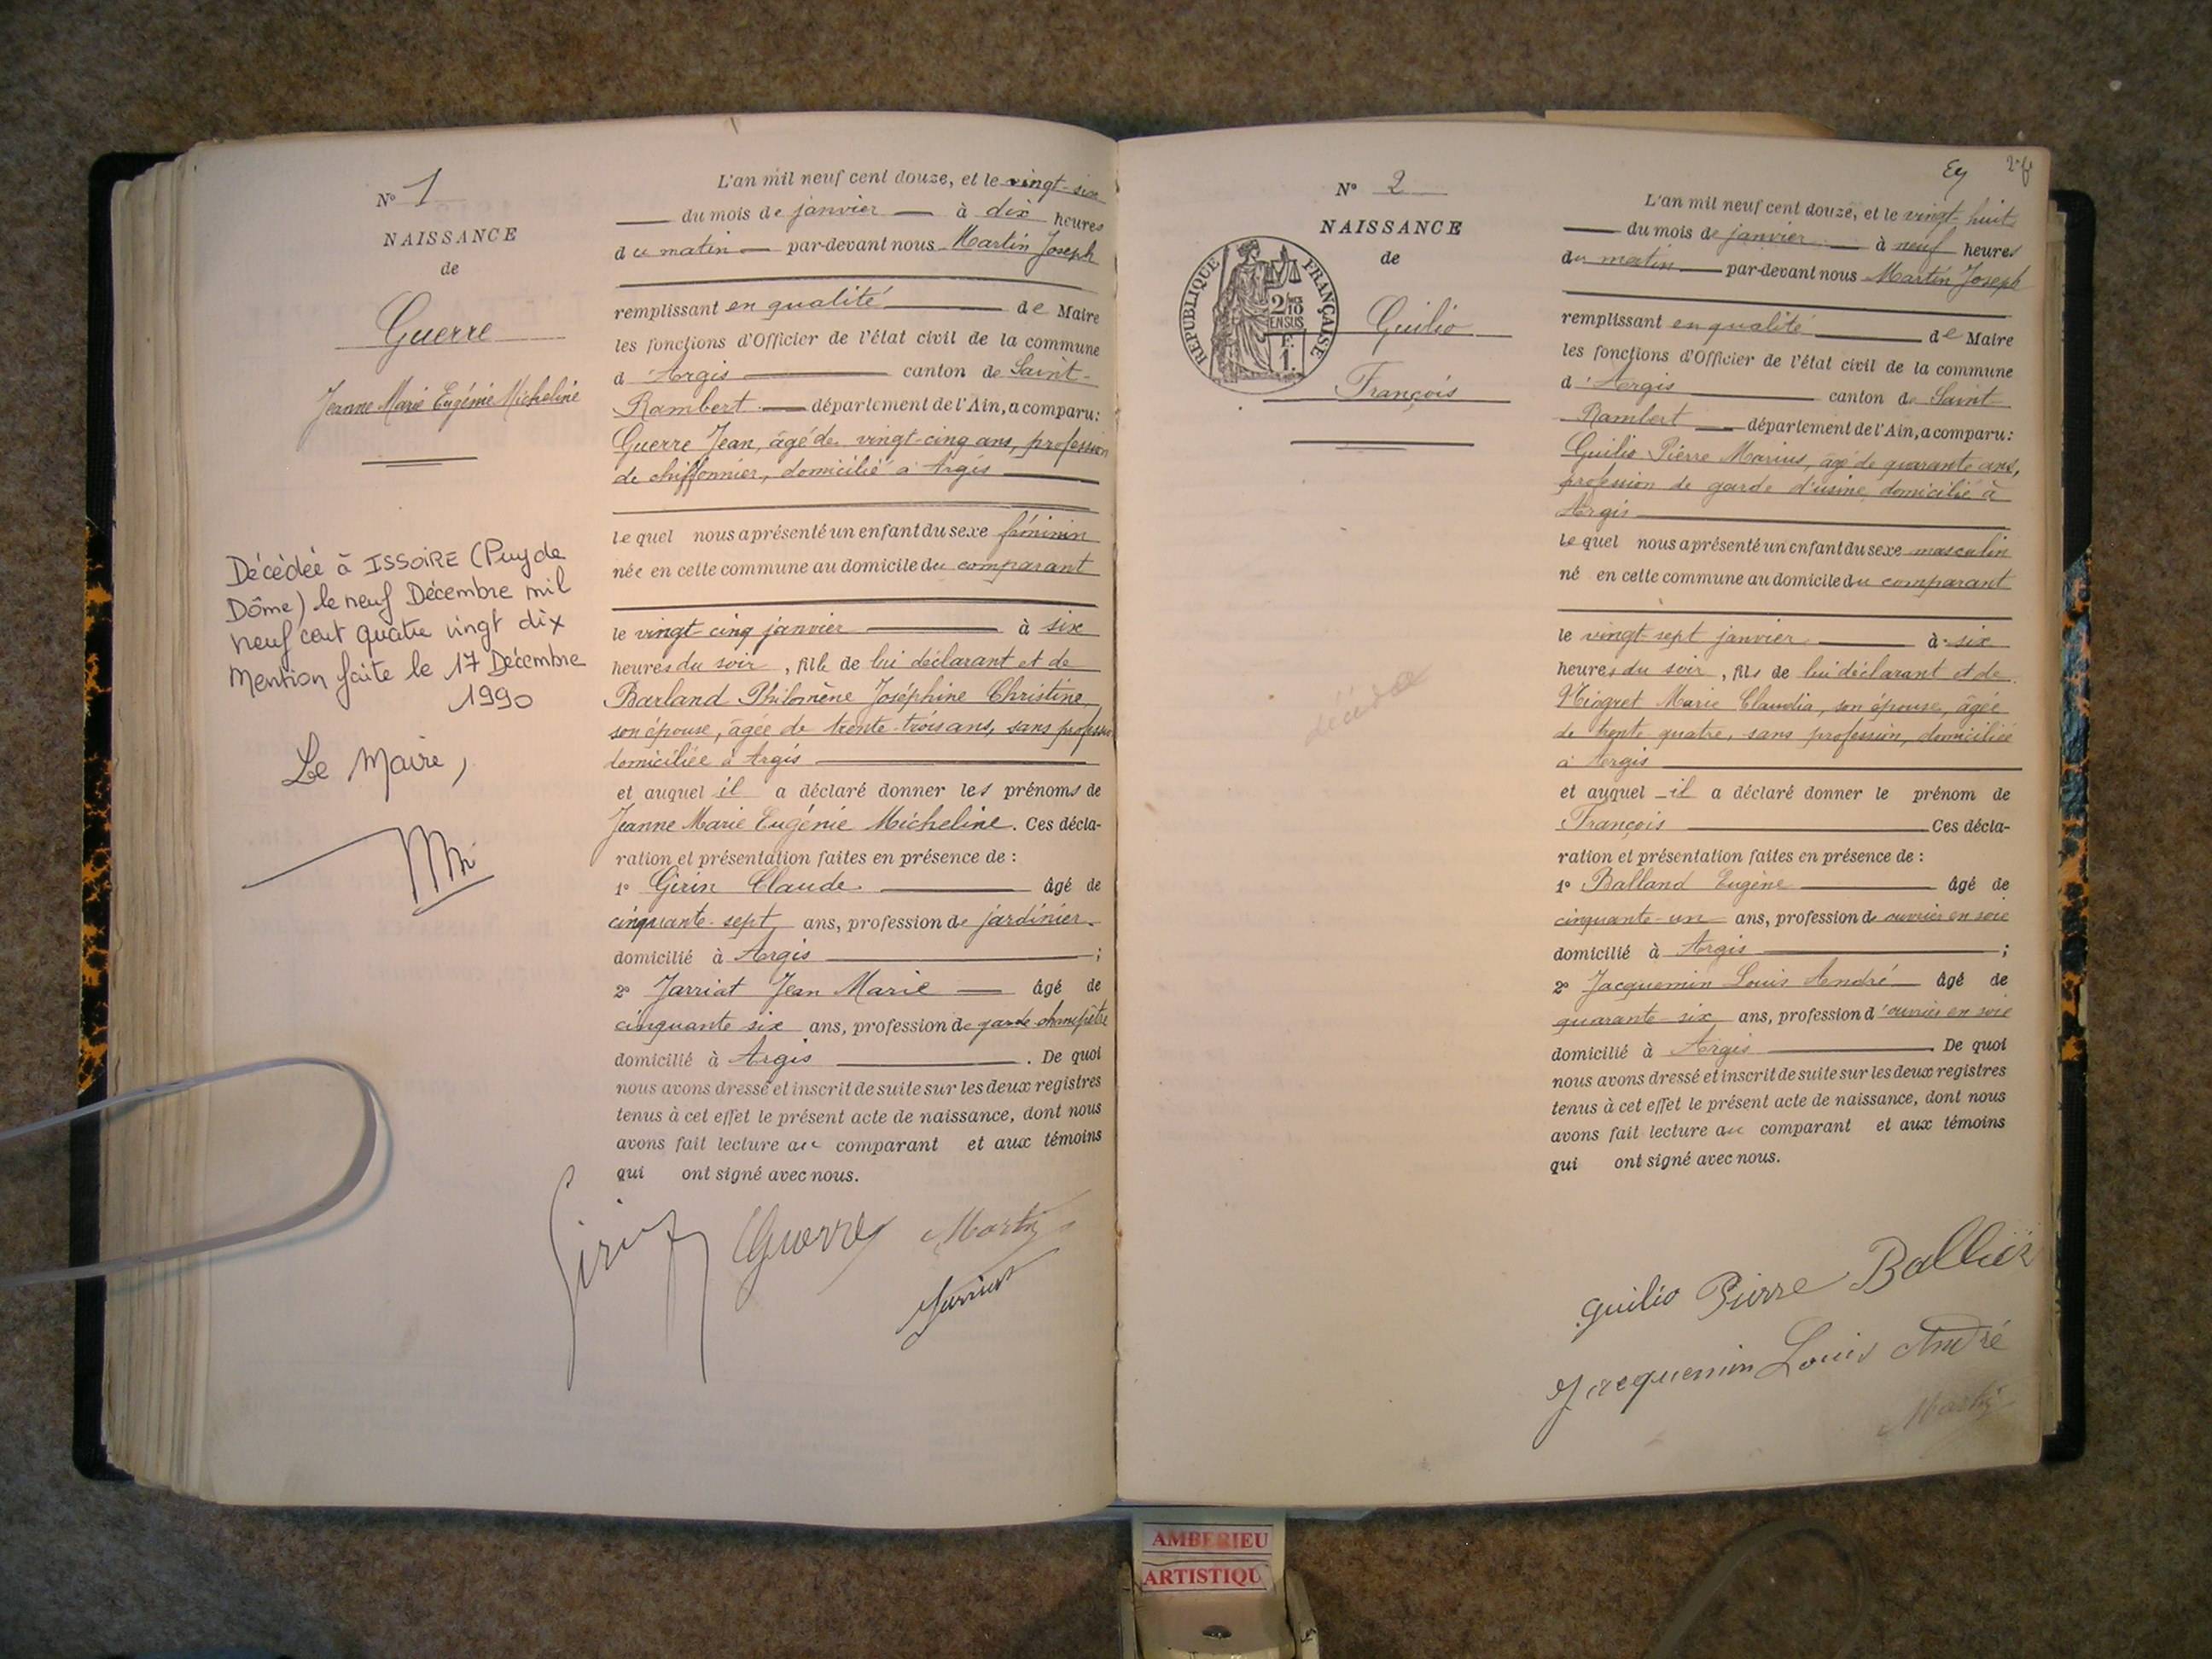 N° 1
NAISSANCE
de
Guerre
Jeanne Marie Eugénie Micheline
Décédée à ISSOIRE (Puy de
Dôme) le neuf Décembre mil
neuf cent quatre vingt dix
Mention faite le 17 Décembre
1990
Le Maire,
L'an mil neuf cent douze, et le vingt-six
du mois de janvier à dix heures
du matin par-devant nous Martin Joseph
remplissant en qualité de Maire
les fonctions d'Officier de l'état civil de la commune
d'Argis canton de Saint-
Rambert département de l'Ain, a comparu:
Guerre Jean, âgé de vingt-cinq ans, profession
de chiffonnier, domicilié à Argis
lequel nous a présenté un enfant du sexe féminin
née en cette commune au domicile du comparant
le vingt-cinq janvier à six
heures du soir, fille de lui déclarant et de
Barland Philomène Joséphine Christine,
son épouse, âgée de trente-trois ans, sans profession
domiciliée à Argis
et auquel il a déclaré donner les prénoms de
Jeanne Marie Eugénie Micheline. Ces décla-
ration et présentation faites en présence de :
1° Girin Claude âgé de
cinquante-sept ans, profession de jardinier
domicilié à Argis ;
2° Jarriat Jean Marie âgé de
cinquante six ans, profession de garde-champêtre
domicilié à Argis . De quoi
nous avons dressé et inscrit de suite sur les deux registres
tenus à cet effet le présent acte de naissance, dont nous
avons fait lecture au comparant et aux témoins
qui ont signé avec nous.
Girin Guerre Martin
Jarriat
Ey
N° 2
NAISSANCE
de
REPUBLIQUE FRANÇAISE
2/10
EN SUS
F.
1.
Guilio
François
décédé
L'an mil neuf cent douze, et le vingt-huit
du mois de janvier à neuf heures
du matin par-devant nous Martin Joseph
remplissant en qualité de Maire
les fonctions d'Officier de l'état civil de la commune
d'Argis canton de Saint-
Rambert département de l'Ain, a comparu:
Guilio Pierre Marius, âgé de quarante ans,
profession de garde d'usine, domicilié à
Argis
lequel nous a présenté un enfant du sexe masculin
né en cette commune au domicile du comparant
le vingt-sept janvier à six
heures du soir, fils de lui déclarant et de
Marie Claudia, son épouse, âgée
de trente quatre, sans profession, domiciliée
à Argis
et auquel il a déclaré donner le prénom de
François Ces décla-
ration et présentation faites en présence de :
1° Balland Eugène âgé de
cinquante-un ans, profession d ouvrier en soie
domicilié à Argis ;
2° Jacquemin Louis André âgé de
quarante-six ans, profession d'ouvrier en soie
domicilié à Argis . De quoi
nous avons dressé et inscrit de suite sur les deux registres
tenus à cet effet le présent acte de naissance, dont nous
avons fait lecture au comparant et aux témoins
qui ont signé avec nous.
Guilio Pierre
Jacquemin Louis André
Martin
AMBERIEU
ARTISTIQU